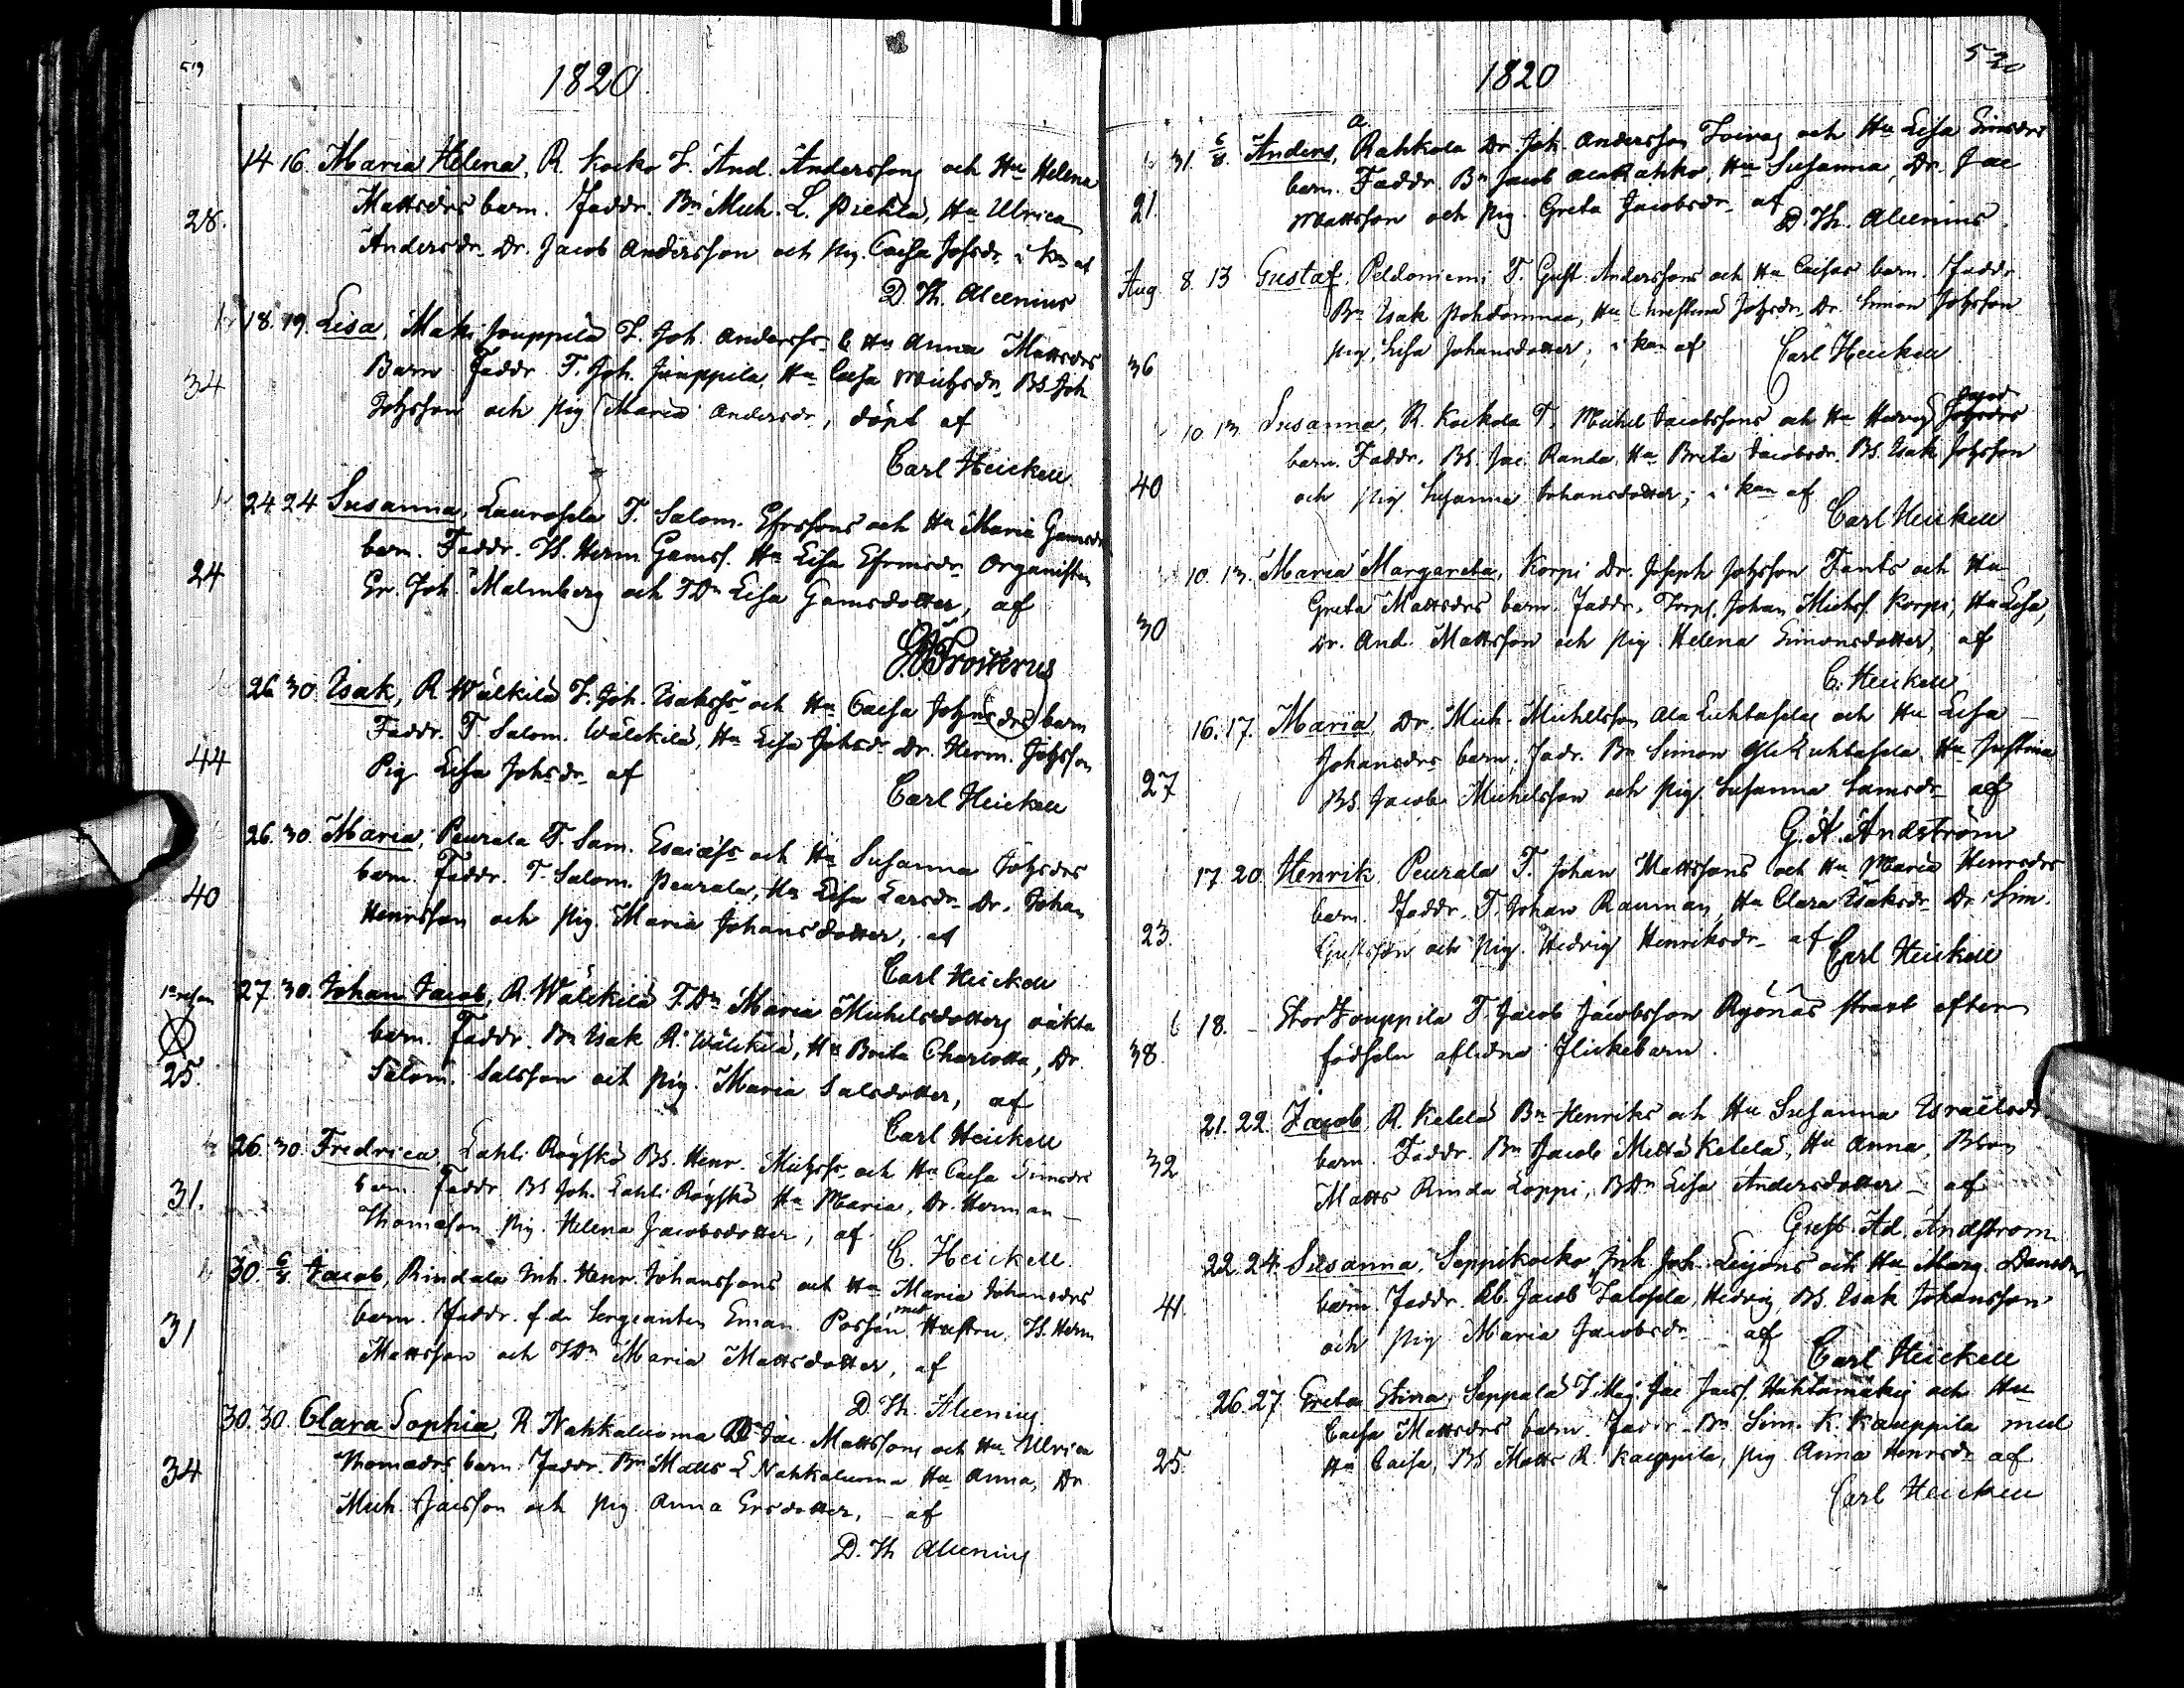 519
1820.
14 16. Maria Helena, R. Kocko T. And. Anderssons och Hu Helena
28.
Mattsdrs barn. Faddr. Bn Mich. L. Piehla, Hu Ulrica
Andersdr, Dr. Jacob Andersson och pig. Caisa Johsdr i kan af
D. Th. Alcenius
18. 19. Lisa, Maki Jouppila T. Joh. Anderss. & Hu Anna Mattsdrs
34
Barn Faddr. T. Joh. Jouppila, Hu Caisa Michsdr, Bs. Joh
Johsson och pig Maria Andersdr, döpt af
Carl Heickell
24 24 Susanna, Laurosela T. Salom. Efrssons och Hu Maria Gamsdr
24
barn. Faddr. Th. Herm. Gamss. Hu Lisa Efrmsdr Organisten
Gr. Joh. Malmberg och TDn Lisa Gamsdotter, af
Prosterus
26. 30. Isak, R Wälkilä T. Joh. Isakss och Hu Caisa Johsdrs barn
44
Faddr. T. Salom. Wälckilä, Hu Lisa Johsdr Dr. Herm. Johsson
Pig Lisa Johsdr af
Carl Heickell
26. 30. Maria, Peurala T. Sam. Esaiæss och Hu Susanna Johsdrs
40
barn. Faddr. T. Salom. Peurala, Hu Lisa Larsdr Dr. Johan
Henrsson och pig. Maria Johansdotter, af
Carl Heickell
27. 30. Johan Jacob, R. Wälckilä TDn Maria Michelsdotters oäkta
25.
barn. Faddr. Bn Isak R. Wälckilä, Hu Brita Charlotta, Dr
Salom. Salsson och pig. Maria Salsdotter, af
Carl Heickell
26. 30 Fredrica, Lahti Röyskö Bs. Henr. Michss och Hu Caisa Simsdrs
31.
barn. Faddr. Bs Joh. Lahti Röyskö Hu Maria, Dr. Herman
Thomasson pig. Helena Jacobsdotter, af
C. Heickell.
30. 6/8 Jacob, Rindala Inh. Henr. Johanssons och Hu Maria Johansdrs
31
barn. Faddr. f.d. Sergeanten Eman. Possén med Hustru, Th. Herm
Mattsson och TDn Maria Mattsdotter, af
D. Th. Alcenius.
30. 30. Clara Sophia, R Nahkaluoma Dr Jac. Mattssons och Hu Ulrica
34
Thomædrs barn. Faddr. Bn Matts L Nahkaluoma Hu Anna, Dr
Mich. Jacsson och pig. Anna Ersdotter, af
D. Th Alcenius
520
1820
31. 6/8. Anders, Rahkola Dr. Joh. Andersson Toivas och Hu Lisa Simsdrs
21.
barn. Faddr. Bn Jacob Ala Rahko, Hu Susanna, Dr. Jac
Mattsson och pig. Greta Jacobsdr af
D. Th. Alcenius.
Aug 8. 13 Gustaf, Peldoniemi T. Gust. Anderssons och Hu Caisas barn. Faddr
36
Bn Isak Pohdommaa, Hu Christina Johsdr, Dr. Simon Johsson
pig. Lisa Johansdotter, i kan af Carl Heickell
10. 13. Susanna, R. Kockola T. Michel Jacobssons och Hu Hedvig
40
barn. Faddr. Bs. Jac. Randa, Hu Brita Jacobsdr. Bs. Isak Johsson
och pig Susanna Johansdotter, i kan af
Carl Heickell
10. 13. Maria Margareta, Korpi Dr. Joseph Johsson Fants och Hu
30
Greta Mattsdrs barn. Faddr. Torpl. Johan Michss. Korpi, Hu Lisa,
Dr. And. Mattsson och pig. Helena Simonsdotter, af
C. Heickell
16. 17. Maria, Dr. Mich. Michelsson Ala Luhtasela och Hu Lisa
27
Johansdrs barn. Fadr. Bn Simon Yli Luhtasela, Hu Justina
Bs. Jacob Michelsson och pig Susanna Samsdr af
G. A. Andström
17 20. Henrik, Peurala T. Johan Mattssons och Hu Maria Henrsdrs
23.
barn. Faddr. T. Johan Rauman, Hu Clara Isaksdr Dr. Sim.
Gustsson och pig. Hedvig Henriksdr af Carl Heickell
18. Stor Jouppila T. Jacob Jacobsson Ryönäs strax efter
38.
födseln aflidna flickebarn.
21. 22. Jacob R. Ketelä Bn Henriks och Hu Susanna Israelsdr
32
barn. Faddr. Bn Jacob Mettä Ketelä, Hu Anna, Bson
Matts Rinda Loppi, BDn Lisa Andersdotter af
Gust. Ad. Andström
22. 24. Susanna, Seppikocko Inh Joh. Leijons och Hu Marg. Dansdr
41.
barn. Faddr. Rb. Jacob Talosela, Hedvig, Bs. Isak Johansson
och pig Maria Jacobsdr af
Carl Heickell
26. 27. Greta Stina, Seppälä T. Mag. Jac Jacss. Huhtamäkis och Hu
25.
Caisa Mattsdrs barn. Faddr. Bn Sim. K. Kauppila med
Hu Caisa, Bs Matts R. Kauppila, pig Anna Henrsdr af
Carl Heickell